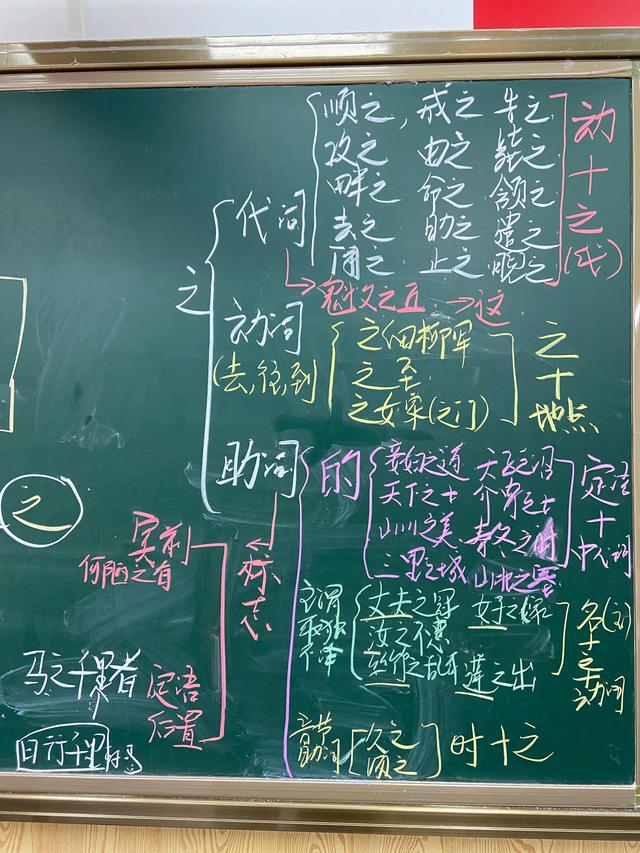 之
代词
顺之，戒之 牛之
攻之 由之
畔之 命之 领之
去之 助之 遣之
用之 止之
动十之(代)
魁父之丘 → 这
动词
(去,往,到)
之细柳军
之至
之女家(之门)
之十地点
助词
的
妾妇之道
天下之士 介胄之士
山川之美 春冬之时
三里之城
定语十中心词
标志
宾前
何陋之有
定语后置
马之千里者
日行千里
之
主谓取独
丈夫之冠 女子之嫁
汝之不惠
丝竹之乱耳 莲之出
名(主)十之十动词
音节助词
久之
顷之
时十之